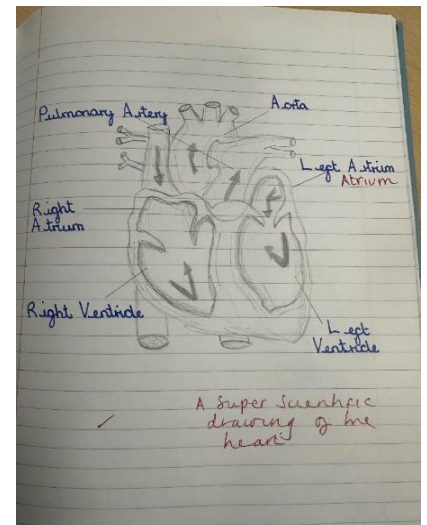 Pulmonary Artery
Aorta
Left Atrium
Atrium
Right
Atrium
Right Ventricle
Left
Ventricle
A super scientific
drawing of the
heart